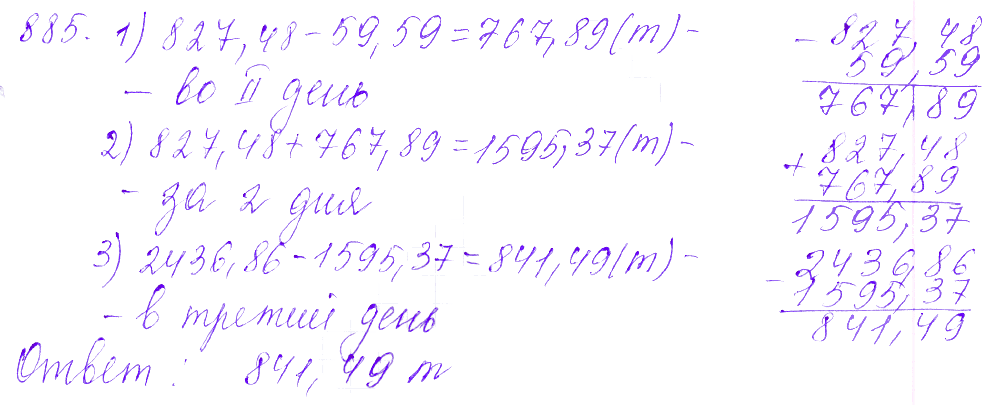 885. 1) 827,48 - 59,59 = 767,89 (т) -
- во II день
2) 827,48 + 767,89 = 1595,37 (т) -
- за 2 дня
3) 2436,86 - 1595,37 = 841,49 (т) -
- в третий день
Ответ: 841,49 т
- 827,48
59,59
767,89
+ 827,48
767,89
1595,37
- 2436,86
1595,37
841,49